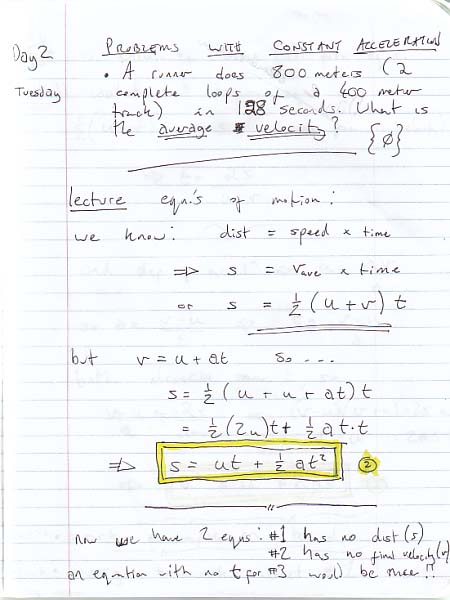 Day 2
Tuesday
PROBLEMS WITH CONSTANT ACCELERATION
• A runner does 800 meters (2
complete loops of a 400 meter
track) in 128 seconds. What is
the average velocity?
{∅}
lecture eqn's of motion:
we know: dist = speed × time
⇒ s = vave × time
or s = ½ (u + v) t
but v = u + at so ....
s = ½ (u + u + at) t
= ½ (2u)t + ½ at·t
⇒ s = ut + ½ at² ②
now we have 2 eqns: #1 has no dist (s)
#2 has no final velocity (v)
an equation with no t for #3 would be nice!!